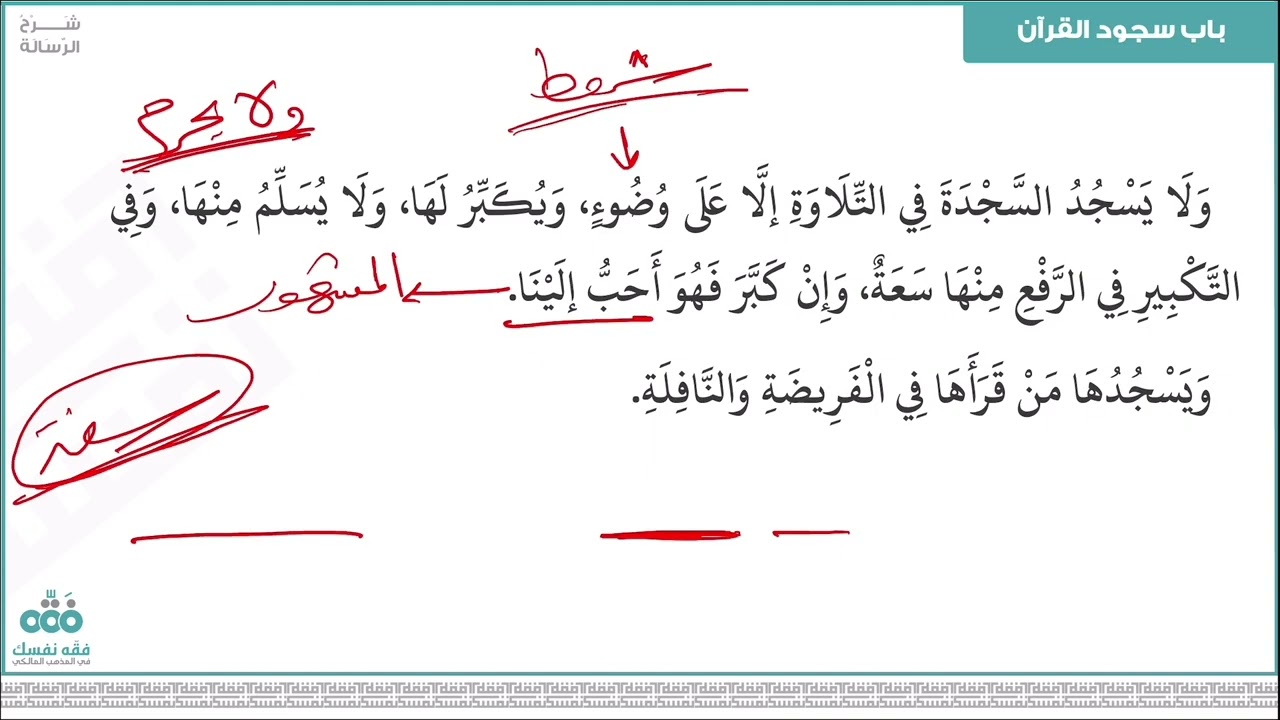 باب سجود القرآن
شَرْحُ
الرِّسَالَة
شروط
ولا يحرم
وَلَا يَسْجُدُ السَّجْدَةَ فِي التِّلَاوَةِ إلَّا عَلَى وُضُوءٍ، وَيُكَبِّرُ لَهَا، وَلَا يُسَلِّمُ مِنْهَا، وَفِي
التَّكْبِيرِ فِي الرَّفْعِ مِنْهَا سَعَةٌ، وَإِنْ كَبَّرَ فَهُوَ أَحَبُّ إلَيْنَا.
المشهور
وَيَسْجُدُهَا مَنْ قَرَأَهَا فِي الْفَرِيضَةِ وَالنَّافِلَةِ.
سعة
فقه نفسك
في المذهب المالكي